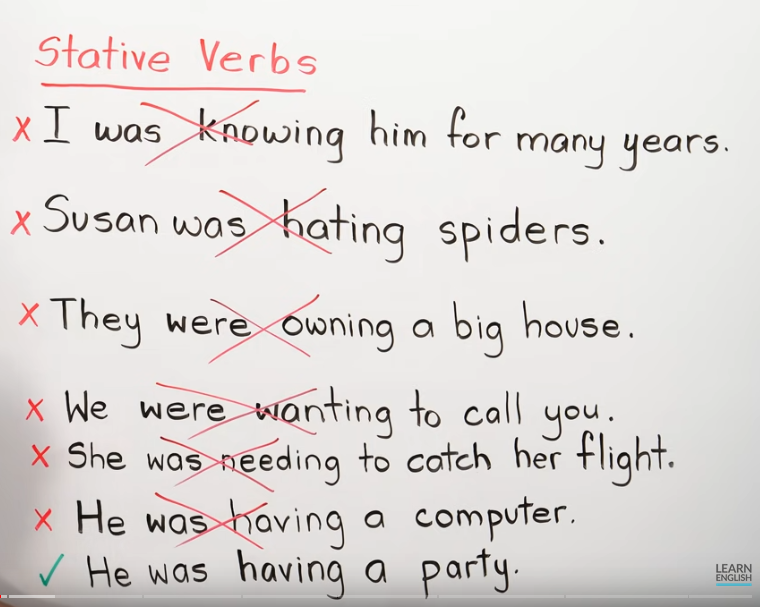 Stative Verbs
x I was knowing him for many years.
x Susan was hating spiders.
x They were owning a big house.
x We were wanting to call you.
x She was needing to catch her flight.
x He was having a computer.
✓ He was having a party.
LEARN
ENGLISH